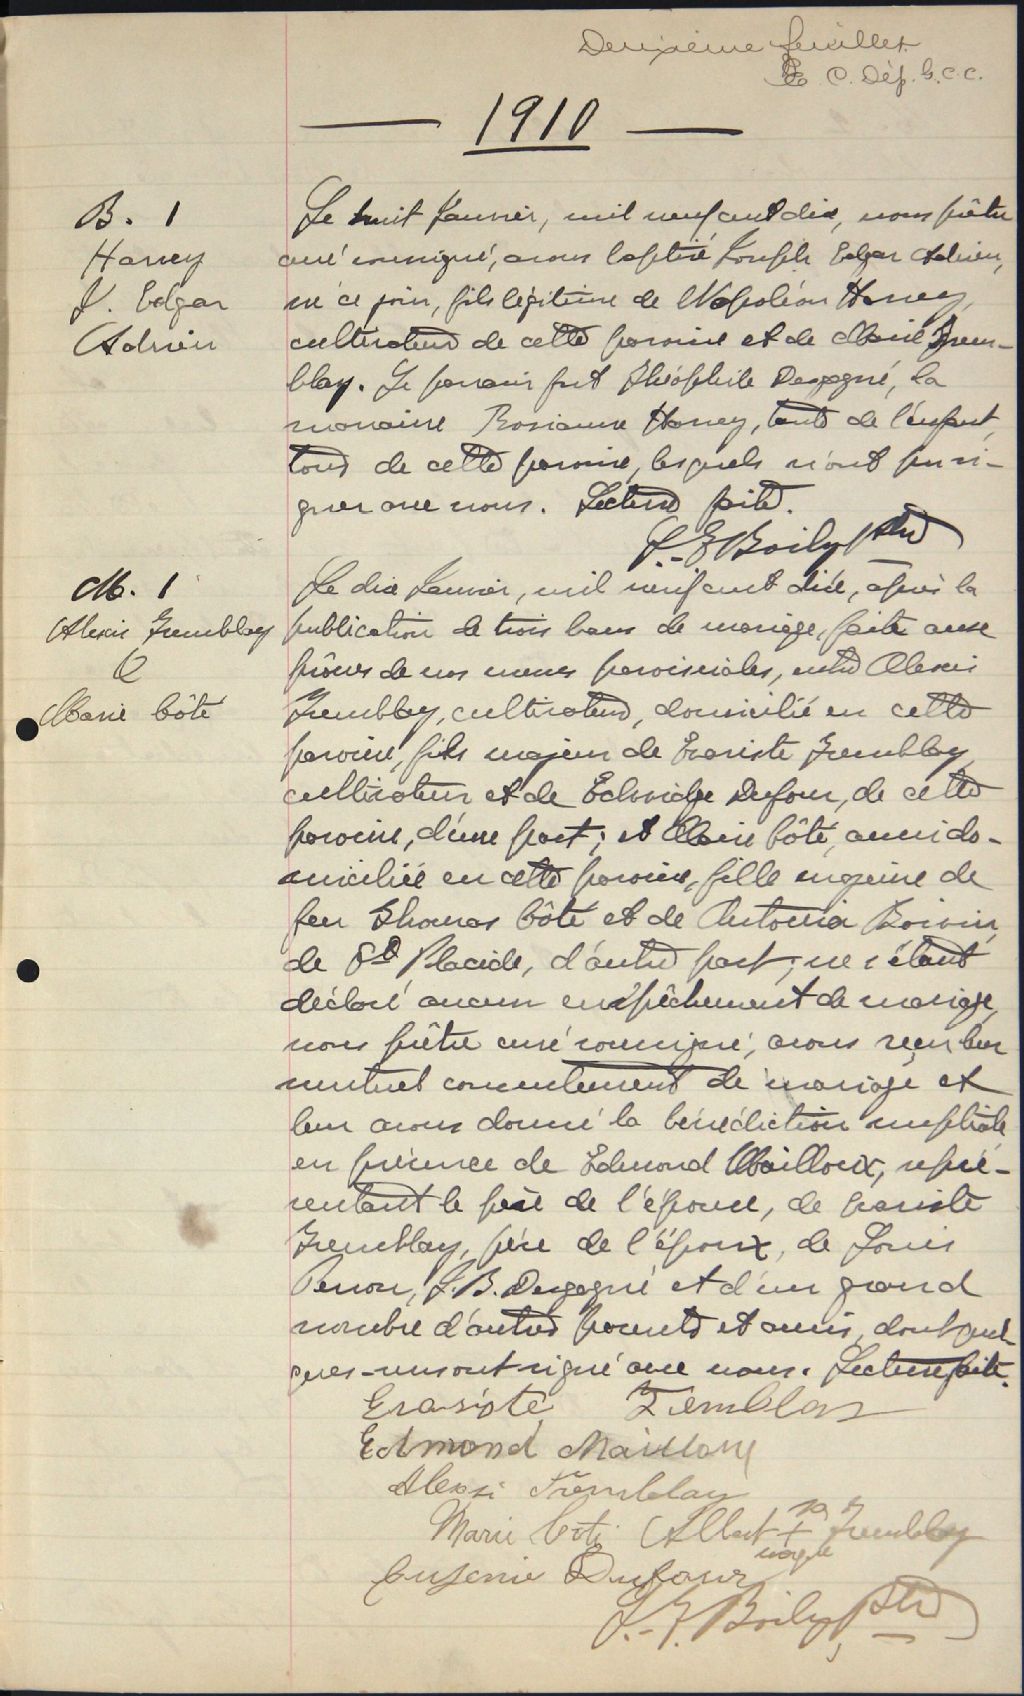 Deuxième feuillet.
C. Dép. G. C. C.
1910
B. 1
Harvey
J. Edgar
Adrien
Le huit Janvier, mil neuf cent dix, nous prêtre
curé soussigné, avons baptisé Joseph Edgar Adrien,
né ce jour, fils légitime de Napoléon Harvey,
cultivateur de cette paroisse et de Marie Trem-
blay. Le parrain fut Théophile Desgagné, la
marraine Rosianne Harvey, tante de l'enfant,
tous de cette paroisse, lesquels n'ont pu si-
gner avec nous. Lecture faite.
J.-E Boily, ptre
M. 1
Alexis Tremblay
&
Marie Côté
Le dix Janvier, mil neuf cent dix, après la
publication de trois bans de mariage, faite aux
prônes de nos messes paroissiales, entre Alexis
Tremblay, cultivateur, domicilié en cette
paroisse, fils majeur de Evariste Tremblay,
cultivateur et de Edwidge Dufour, de cette
paroisse, d'une part; et Marie Côté, aussi do-
miciliée en cette paroisse, fille mineure de
feu Thomas Côté et de Antonia Boivin,
de St Placide, d'autre part; ne s'étant
déclaré aucun empêchement de mariage,
nous prêtre curé soussigné, avons reçu leur
mutuel consentement de mariage et
leur avons donné la bénédiction nuptiale
en présence de Edmond Mailloux, repré-
sentant le père de l'épouse, de Evariste
Tremblay, père de l'époux, de Louis
Perron, J. B. Desgagné et d'un grand
nombre d'autres parents et amis, dont quel-
ques-uns ont signé avec nous. Lecture faite.
Erasiste Tremblay
Edmond Mailloux
Alexsi Tremblay
Marie Coté Albert sa + marque Tremblay
Eugenie Dufour
J.-E. Boily, ptre